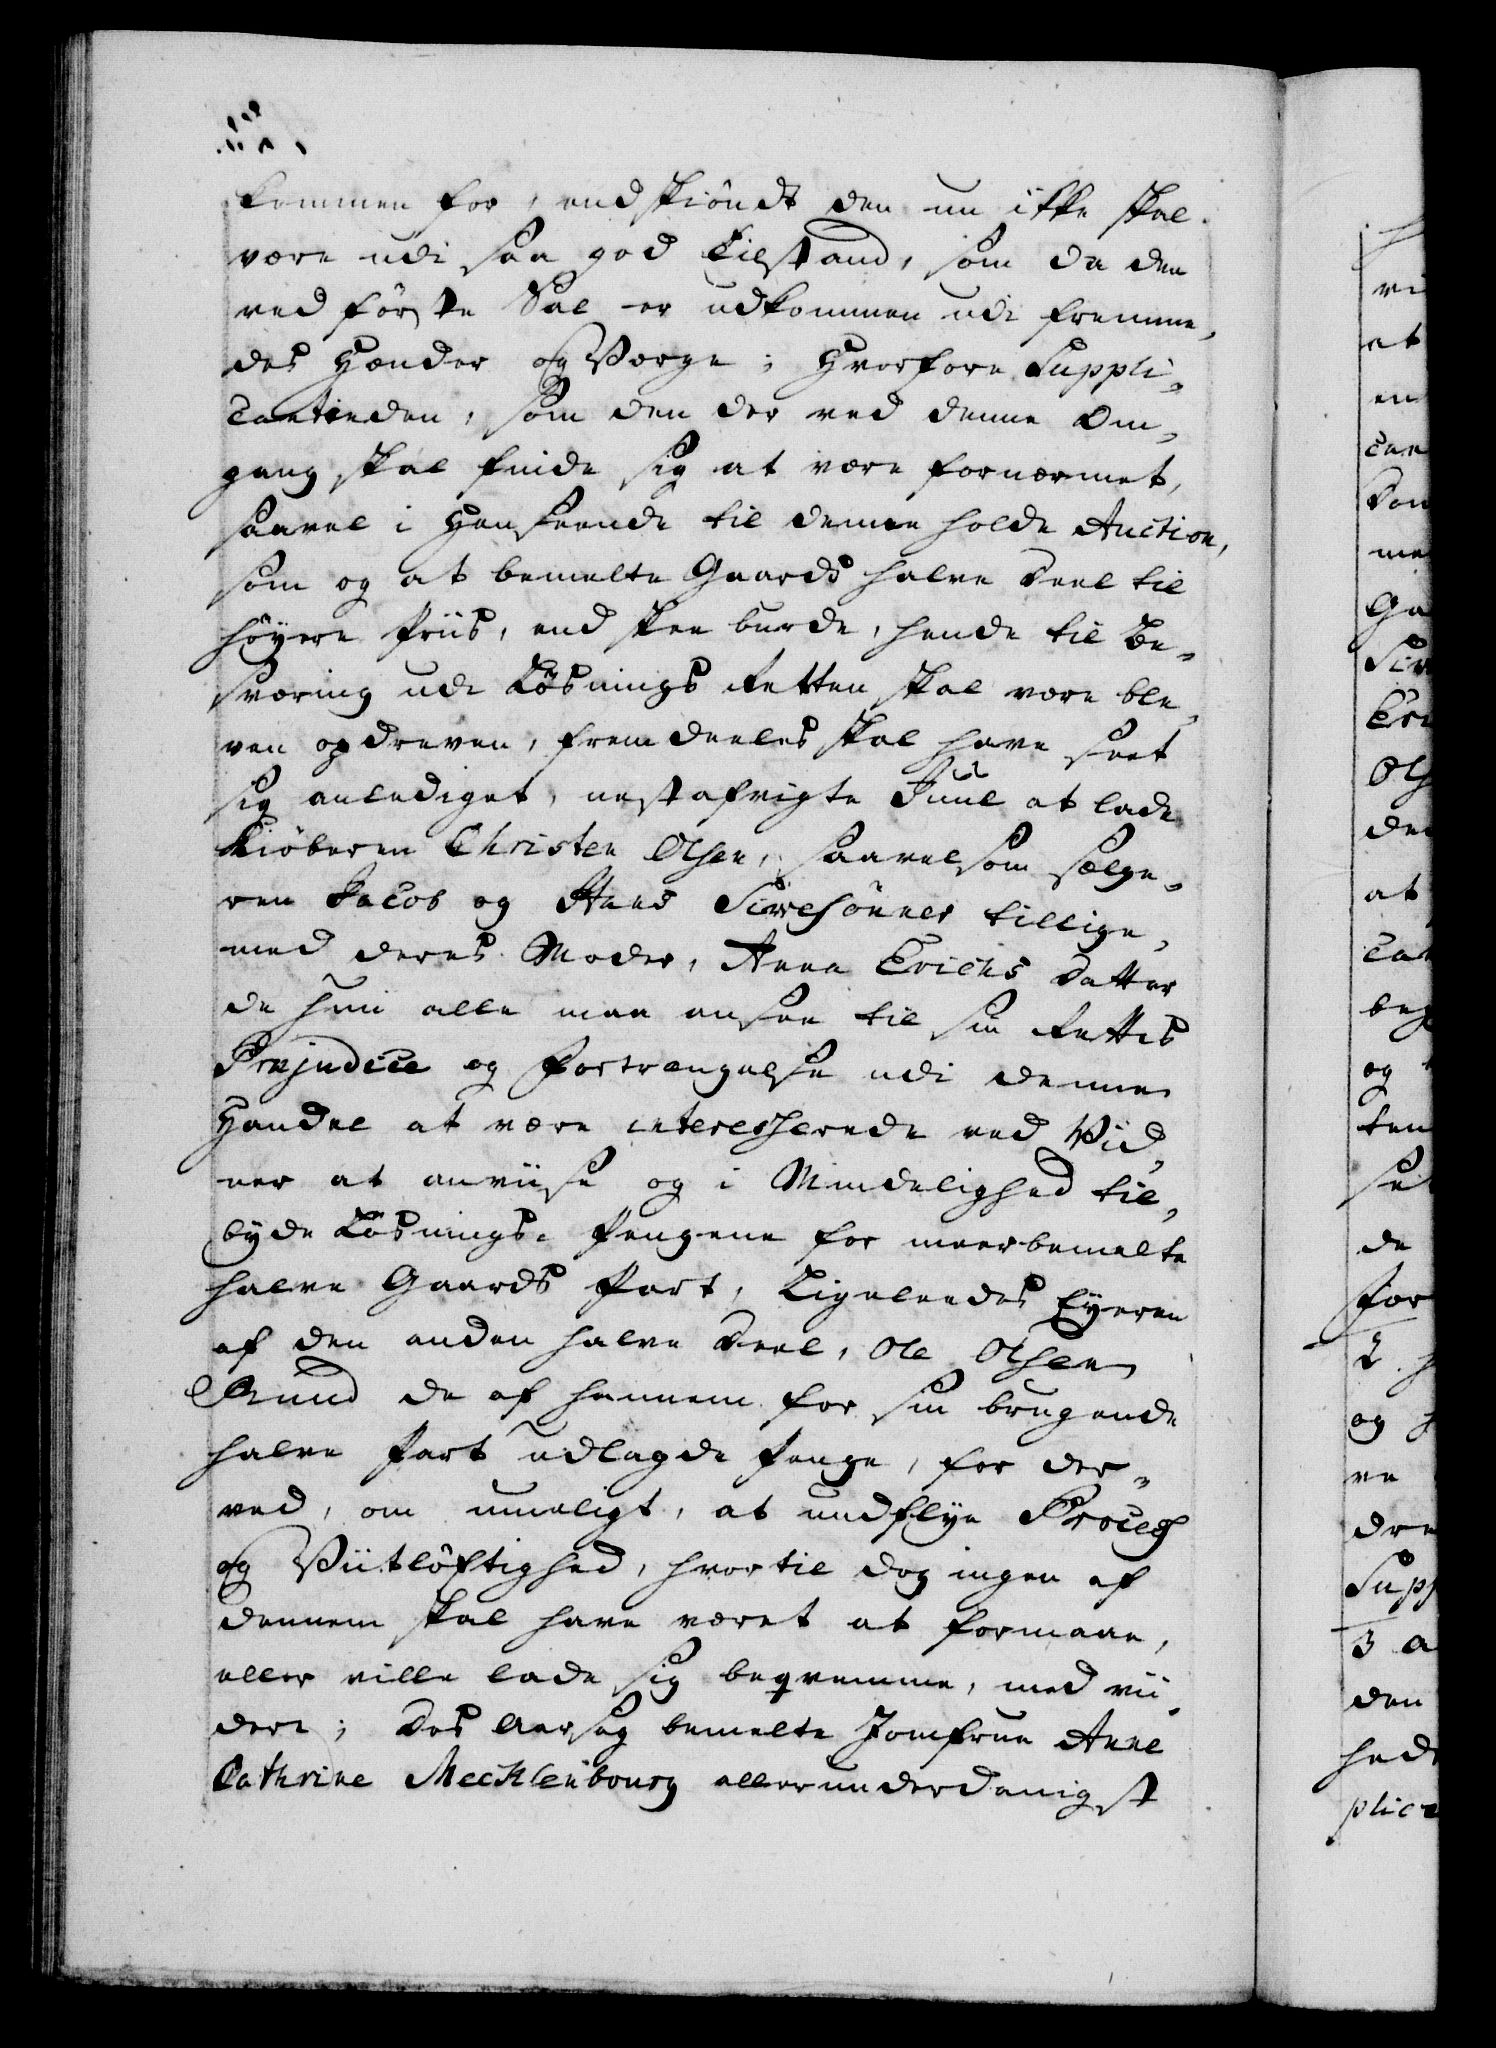 kommen for, endskiöndt den nu ikke skal
være udi saa god Tilstand, som da den
ved förste Sal er udkommen udi fremme-
des Hænder og Værge; Hvorfore Suppli-
cantinden, som den der ved denne Om-
gang skal finde sig at være fornærmet,
saavel i Henseende til denne holdte Auction,
som og at bemelte Gaards halve Deel til
höyere Priis, end skee burde, hende til Be-
sværing udi Lösnings Retten skal være ble-
ven opdreven, fremdeeles skal have seet
sig anlediget, nestafvigte Juul at lade
Kiöberen Christen Olsen, saavelsom Sælge-
ren Jacob og Hans Siversönner tillige-
med deres Moder, Anna Erichs Datter
de hun alle maa ansee til sin Rettes
Præjudice og Fortrængelse udi denne
Handel at være interesserede ved Vid-
ner at anviise og i Mindelighed til-
byde Lösnings-Pengene for meerbemelte
halve Gaards Part, Ligeleedes Eyeren
af den anden halve Deel, Ole Olsen
Rund de af hannem for sin brugende
halve Part udlagde Penge, for der-
ved, om mueligt, at undflye Process
og Viitlöftighed, hvortil dog ingen af
dennem skal have været at formaae,
eller ville lade sig beqvemme, med vii-
dere; Des Aarsag bemelte Jomfrue Anne
Cathrine Mecklenbourg allerunderdanigst